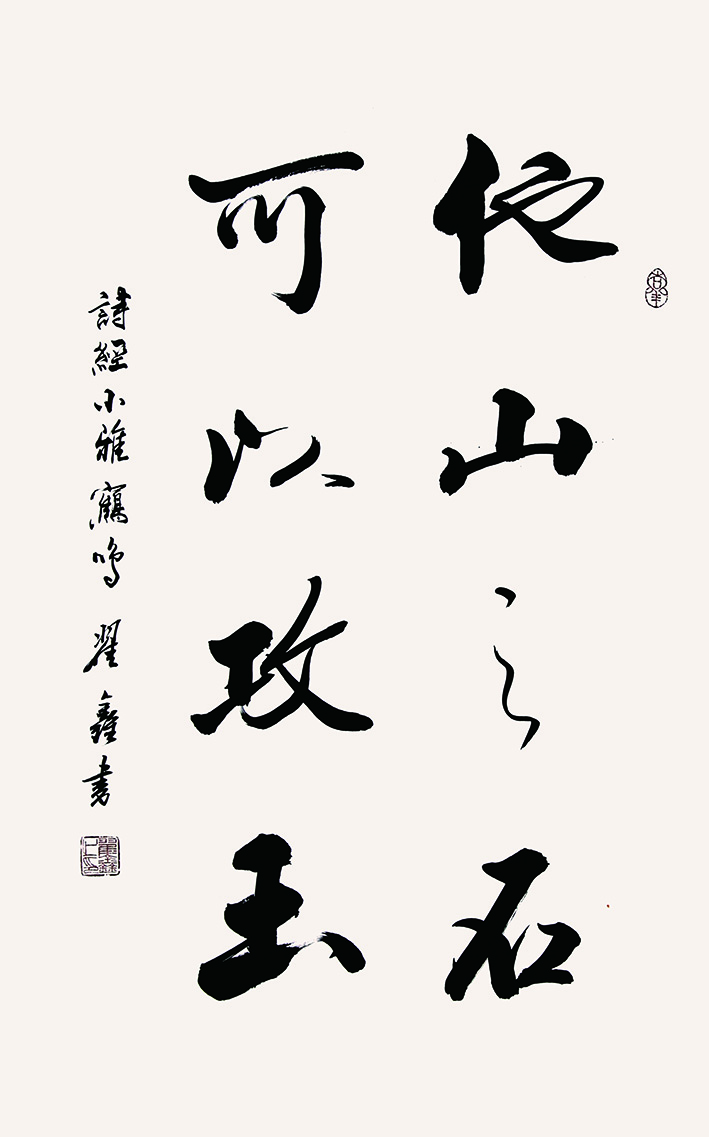 他山之石
可以攻玉
詩經小雅鶴鳴 翟鑫書